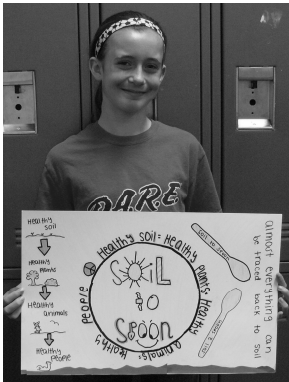 D.A.R.E.
Healthy soil
Healthy Plants
Healthy animals
Healthy People
Healthy soil = Healthy Plants = Healthy animals = Healthy people
SOIL
to
SPOON
soil to spoon
soil to spoon
almost everything can
be traced back to soil